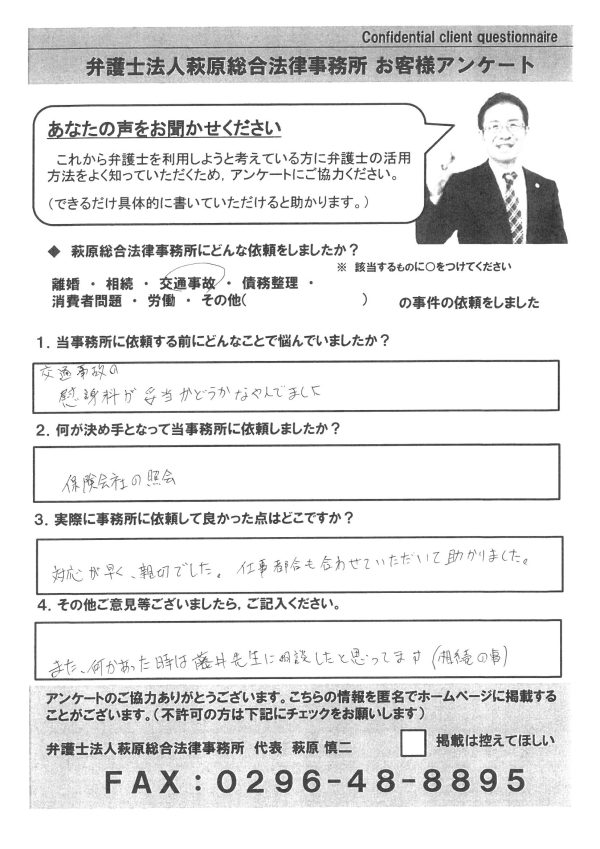 Confidential client questionnaire
弁護士法人萩原総合法律事務所 お客様アンケート
あなたの声をお聞かせください
これから弁護士を利用しようと考えている方に弁護士の活用
方法をよく知っていただくため，アンケートにご協力ください。
（できるだけ具体的に書いていただけると助かります。）
◆ 萩原総合法律事務所にどんな依頼をしましたか？
※ 該当するものに○をつけてください
離婚 ・ 相続 ・ 交通事故 ・ 債務整理 ・
消費者問題 ・ 労働 ・ その他（ ） の事件の依頼をしました
1．当事務所に依頼する前にどんなことで悩んでいましたか？
交通事故の
慰謝料が妥当かどうかなやんでました
2．何が決め手となって当事務所に依頼しましたか？
保険会社の照会
3．実際に事務所に依頼して良かった点はどこですか？
対応が早く、親切でした。仕事都合も合わせていただいて助かりました。
4．その他ご意見等ございましたら，ご記入ください。
また、何かあった時は藤井先生に相談したと思ってます（相続の事）
アンケートのご協力ありがとうございます。こちらの情報を匿名でホームページに掲載する
ことがございます。（不許可の方は下記にチェックをお願いします）
弁護士法人萩原総合法律事務所 代表 萩原 慎二
掲載は控えてほしい
FAX：0296-48-8895